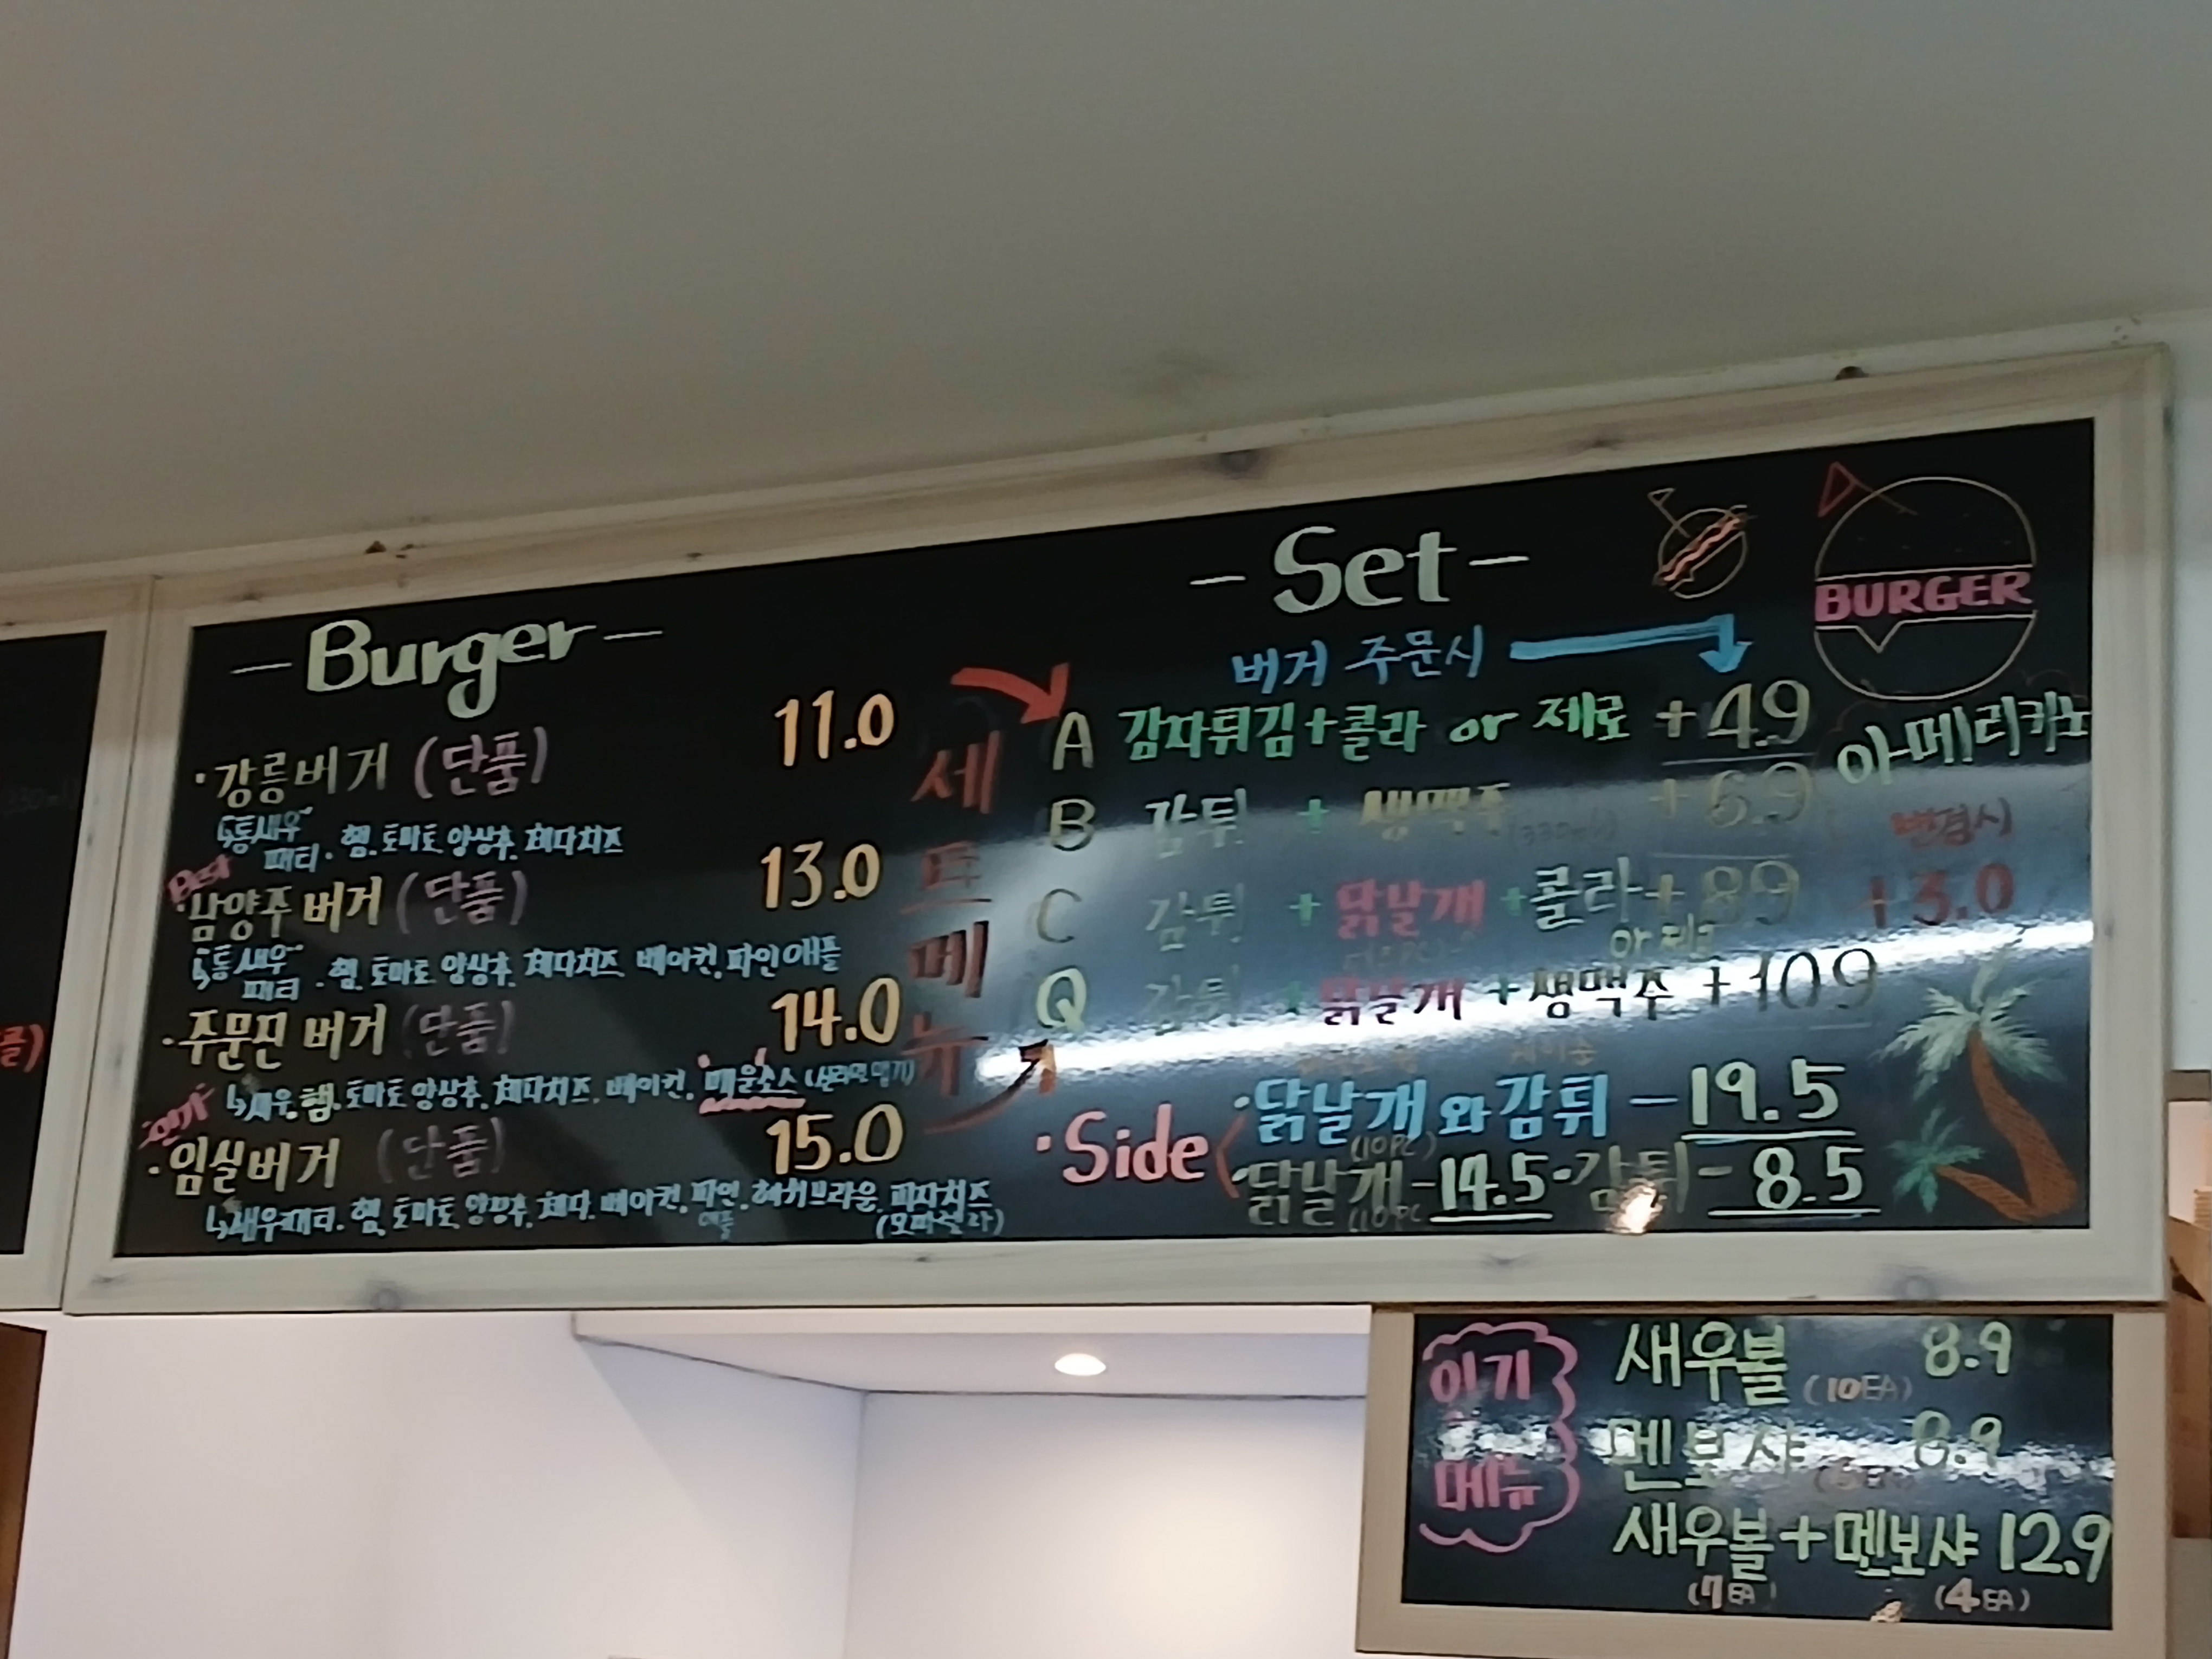 콜)
- Burger -
· 강릉버거 (단품) 11.0
↳통새우
패티 · 햄. 토마토 양상추. 체다치즈
Best
· 남양주 버거 (단품) 13.0
↳통새우
패티 · 햄. 토마토 양상추. 체다치즈 베이컨. 파인애플
· 주문진 버거 (단품) 14.0
↳새우. 햄. 토마토 양상추. 체다치즈. 베이컨. 매운소스
인기
· 임실버거 (단품) 15.0
↳새우패티. 햄. 토마토 양상추. 체다. 베이컨. 파인애플. 해쉬브라운. 피자치즈
(모짜렐라)
세트메뉴
- Set -
BURGER
버거 주문시
A 감자튀김+콜라 or 제로 +4.9
B 감튀 + 생맥주 +6.9
C 감튀 + 닭날개 +콜라 +8.9
or 제로
Q 감튀 + 닭날개 +생맥주 +10.9
아메리카노
변경시
+3.0
· Side
· 닭날개와 감튀 - 19.5
(10PC)
· 닭날개 - 14.5 · 감튀 - 8.5
(10PC
인기메뉴
새우볼 (10EA) 8.9
멘보샤 8.9
새우볼+멘보샤 12.9
(7EA) (4EA)